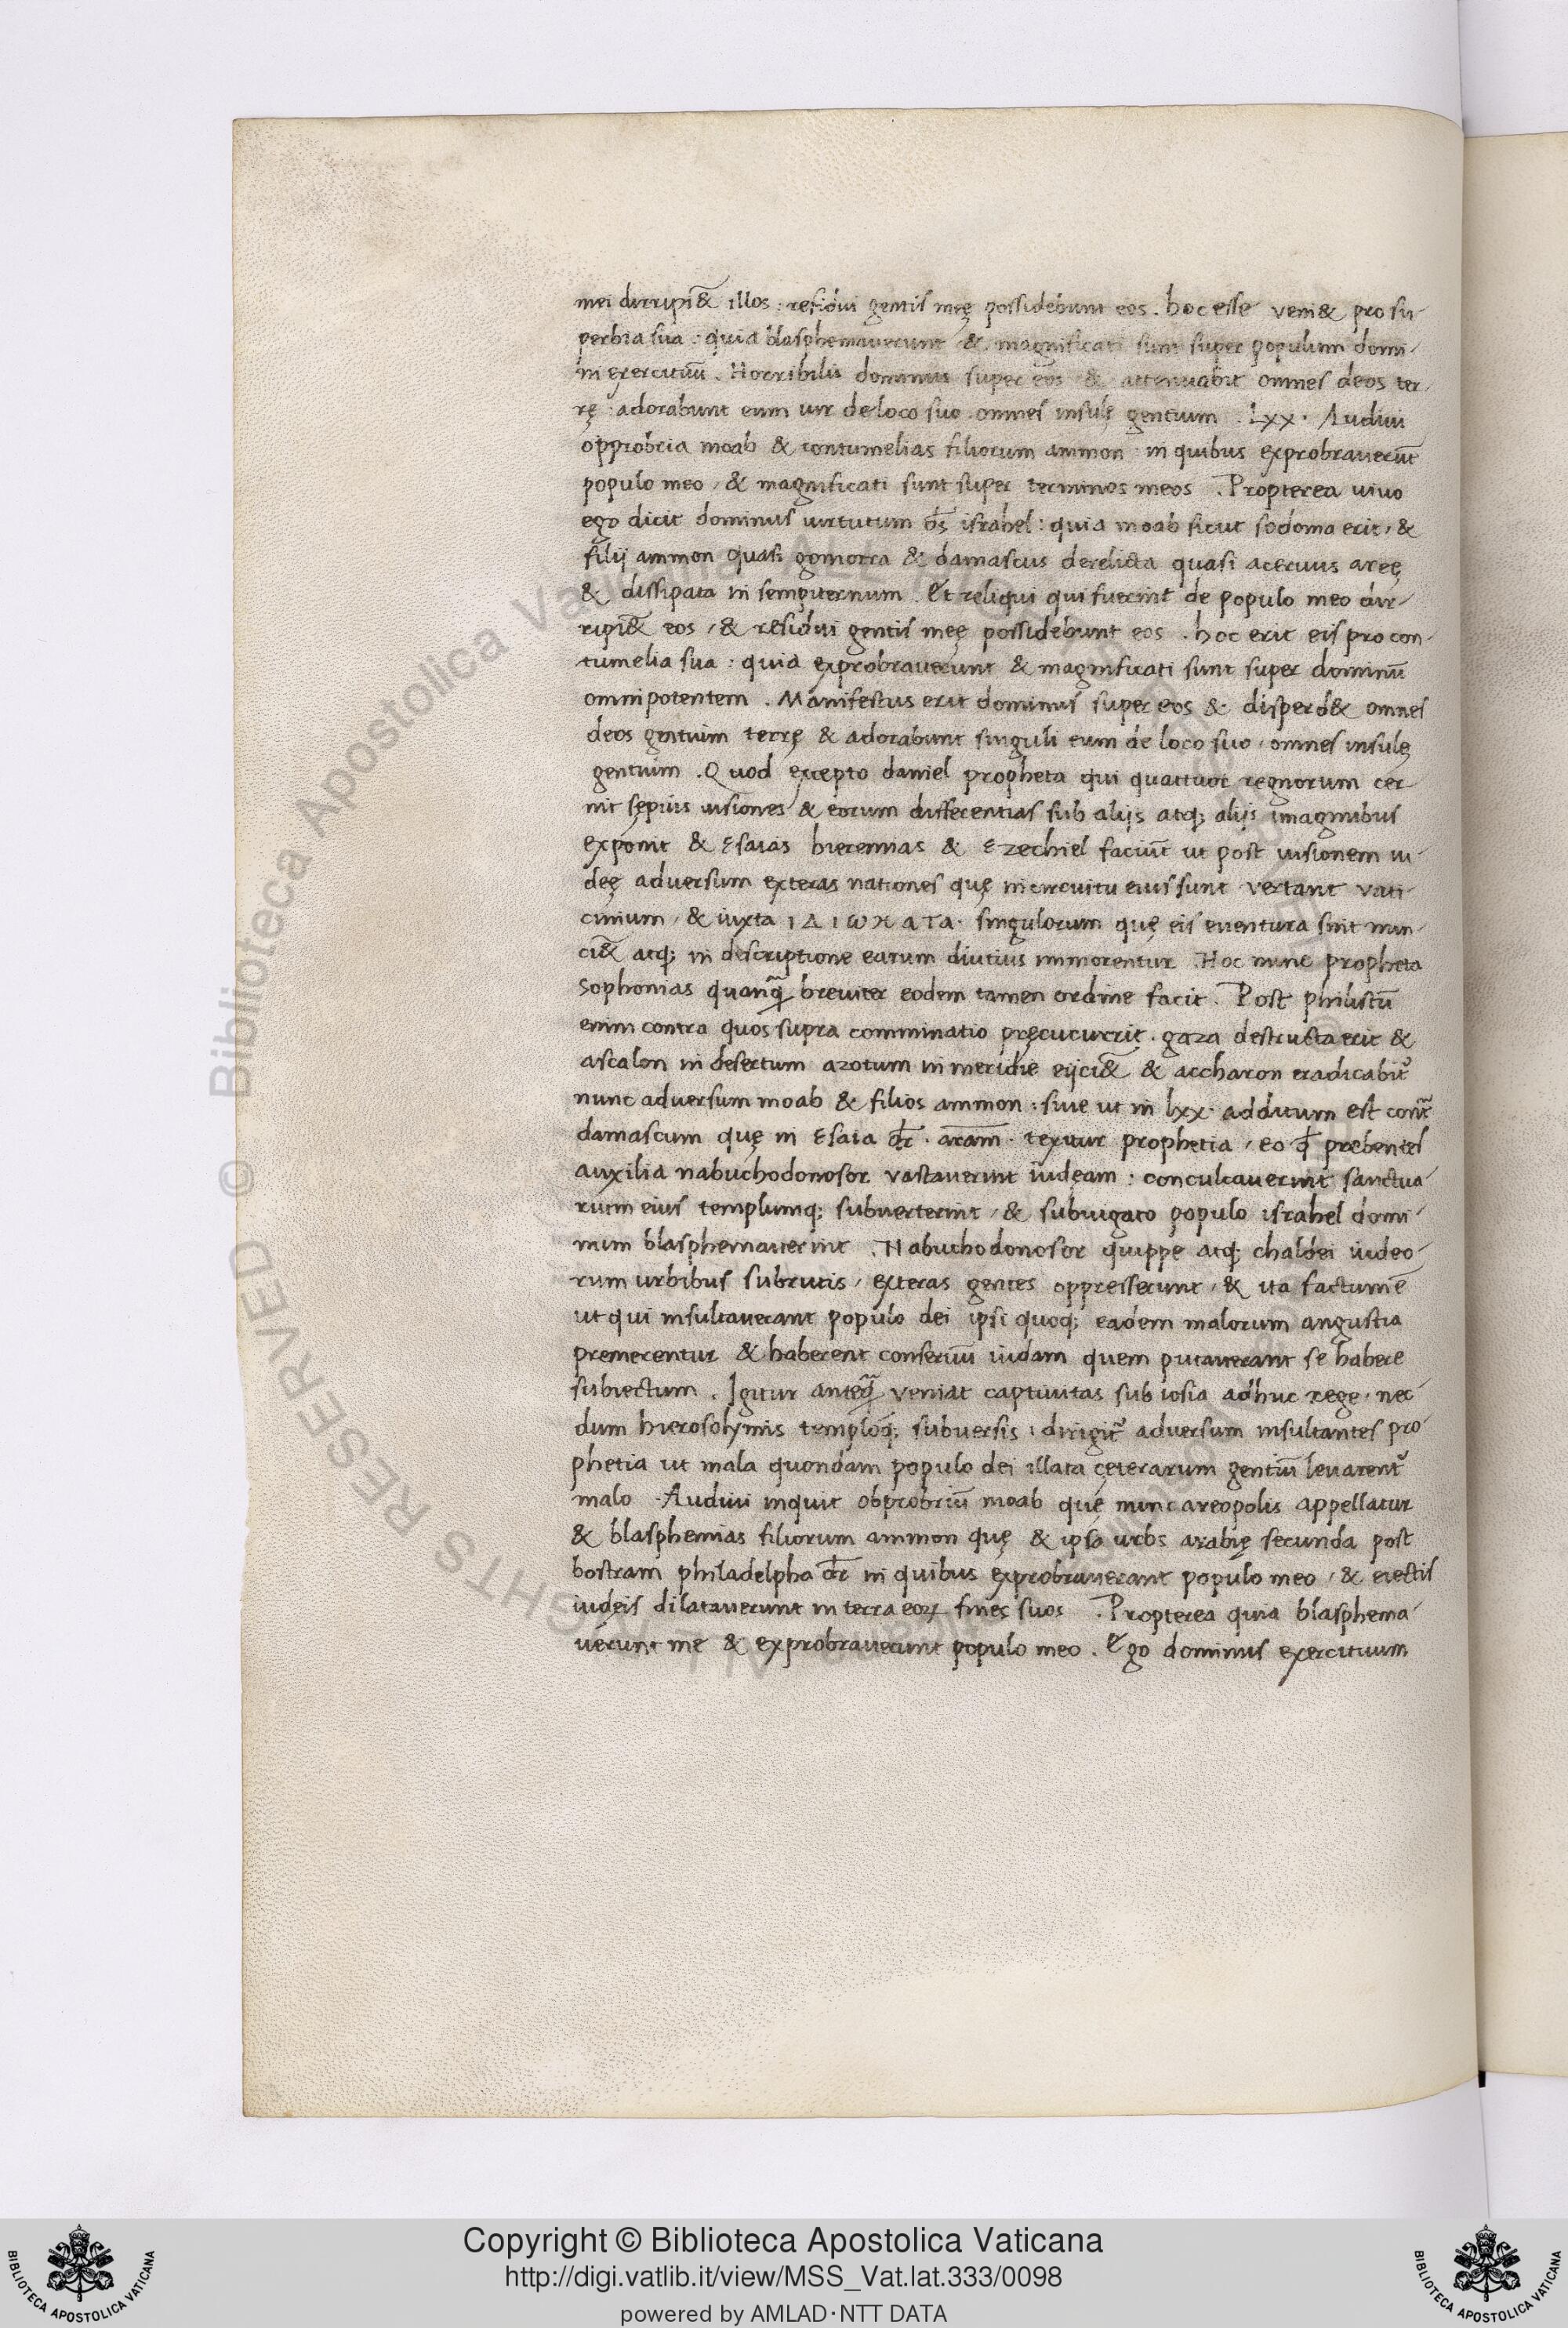 mei diripiēt illos : residui gentis meę possidebunt eos . hoc esse veni& pro su-
perbia sua : quia blasphemaverunt & magnificati sunt super populum domi-
ni exercituū . Horribilis dominus super eos & attenuabit omnes deos ter-
rę : adorabunt eum vir de loco suo omnes insulę gentium . LXX . Audivi
opprobria moab & contumelias filiorum ammon in quibus exprobraverūt
populo meo , & magnificati sunt super terminos meos . Propterea vivo
ego dicit dominus virtutum ds̄ israhel : quia moab sicut sodoma erit , &
filij ammon quasi gomorra & damascus derelicta quasi acervus areę
& dissipata in sempiternum . Et reliqui qui fuerint de populo meo dir-
ripiēt eos , & residui gentis meę possidebunt eos . hoc erit eis pro con-
tumelia sua : quia exprobraverunt & magnificati sunt super dominū
omnipotentem . Manifestus erit dominus super eos & disperd& omnes
deos gentium terrę & adorabunt singuli eum de loco suo , omnes insulę
gentium . Quod excepto daniel propheta qui quattuor regnorum cer-
nit sępius visiones & eorum differentias sub alijs atq; alijs imaginibus
exponit & Esaias hieremias & Ezechiel faciūt ut post visionem iu-
deę adversum exteras nationes quę in circuitu eius sunt vertant vati-
cinium , & iuxta ΙΔΙωΜαΤα . singulorum quę eis eventura sint nun-
ciēt atq; in descriptione earum diutius immorentur . Hoc nunc propheta
sophonias quanq̄ breviter eodem tamen ordine facit . Post philistū
enim contra quos supra comminatio pręcucurrit . gaza destructa erit &
ascalon in desertum azotum in meridie eijciēt & accharon eradicabit᷑
nunc adversum moab & filios ammon : sive ut in lxx . additum est contᷓ
damascum quę in Esaia dr̄ . aram . texitur prophetia , eo ꝙ prebentes
auxilia nabuchodonosor vastaverint iudęam : conculcaverint sanctua-
rium eius templumq; subverterint , & subiugato populo israhel domi-
num blasphemaverint . Nabuchodonosor quippe atq; chaldei iudeo-
rum urbibus subrutis , exteras gentes oppresserunt , & ita factum ē
ut qui insultaverant populo dei ipsi quoq; eadem malorum angustia
premerentur & haberent conservū iudam quem putaverant se habere
subiectum . Igitur anteq̄ veniat captivitas sub iosia adhuc rege , nec-
dum hierosolymis temploq; subversis : dirigit᷑ adversum insultantes pro-
phetia ut mala quondam populo dei illata cęterarum gentiū levarent᷑
malo . Audivi inquit obprobriū moab quę nunc areopolis appellatur
& blasphemias filiorum ammon quę & ipsa urbs arabię secunda post
bostram philadelpha dr̄ in quibus exprobraverant populo meo , & eiectis
iudęis dilataverunt in terra eoꝝ fines suos . Propterea quia blasphema-
verunt me & exprobraverunt populo meo . Ego dominus exercituum
© Biblioteca Apostolica Vaticana ALL RIGHTS RESERVED
Copyright © Biblioteca Apostolica Vaticana
http://digi.vatlib.it/view/MSS_Vat.lat.333/0098
powered by AMLAD·NTT DATA
BIBLIOTECA APOSTOLICA VATICANA
BIBLIOTECA APOSTOLICA VATICANA